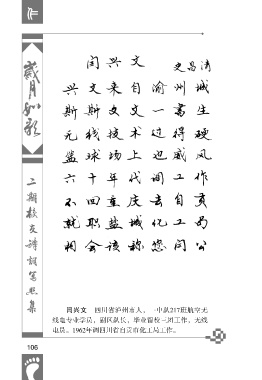 作
岁月如歌
二期校友诗词写照集
闫兴文
史昌清
兴文来自渝州城
斯斯文文一书生
无线技术过得硬
篮球场上逞威风
六十年代调工作
不回重庆去自贡
就职盐城化工局
闫会该称您闫公
闫兴文 四川省泸州市人，一中队217班航空无
线电专业学员，副区队长，毕业留校三团工作，无线
电员。1962年调四川省自贡市化工局工作。
106